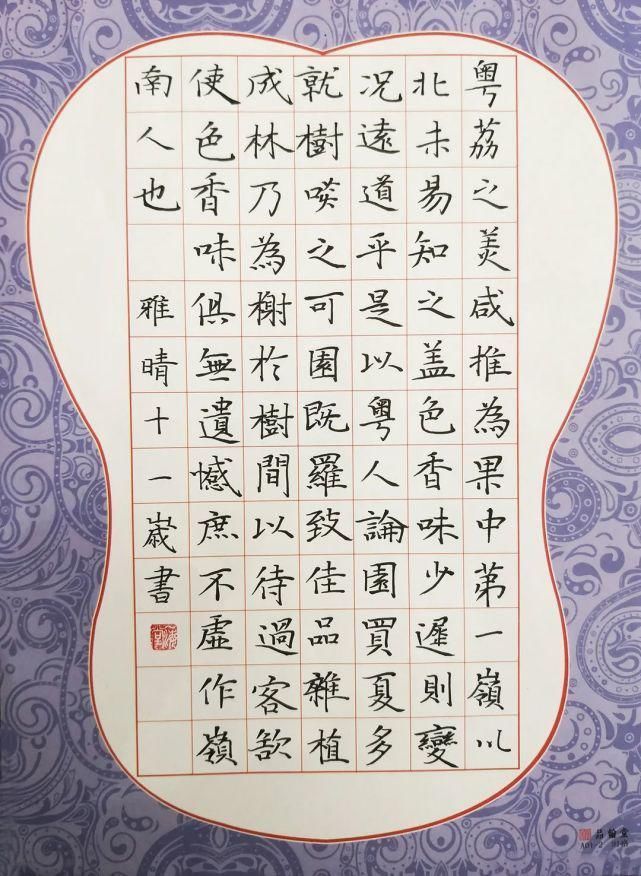 粤荔之美咸推為果中苐一嶺以
北未易知之盖色香味少遲則變
况遠道乎是以粤人論園買夏多
就樹啖之可園既羅致佳品雜植
成林乃為榭於樹間以待過客欲
使色香味俱無遺憾庶不虛作嶺
南人也 雅晴十一歲書
品翰堂
A01-2 91格